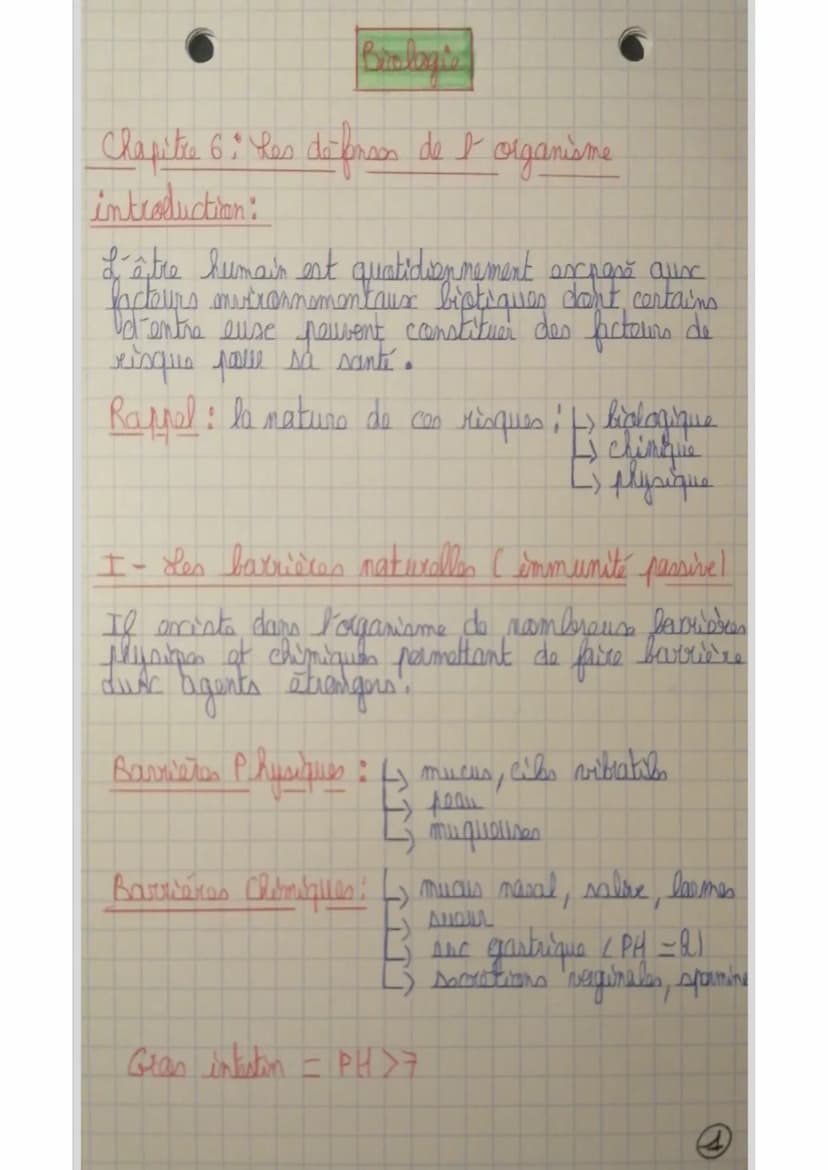 Biologie
Chapitre 6 : Les défenses de l'organisme
introduction :
L'être humain est quotidiennement exposé aux
facteurs environnementaux biotiques dont certains
d'entre eux peuvent constituer des facteurs de
risque pour sa santé.
Rappel : la nature de ces risques : ↳ biologique
↳ chimique
↳ physique
I - Les barrières naturelles ( immunité passive)
Il existe dans l'organisme de nombreuse barrières
physiques et chimiques permettant de faire barrière
aux agents étrangers.
Barrières Physiques : ↳ mucus, cils vibratils
↳ peau
↳ muqueuses
Barrières Chimiques : ↳ mucus nasal, salive, larmes
↳ sueur
↳ suc gastrique ( PH = 2)
↳ secrétions vaginales, spermine
Gros intestin = PH >7
1